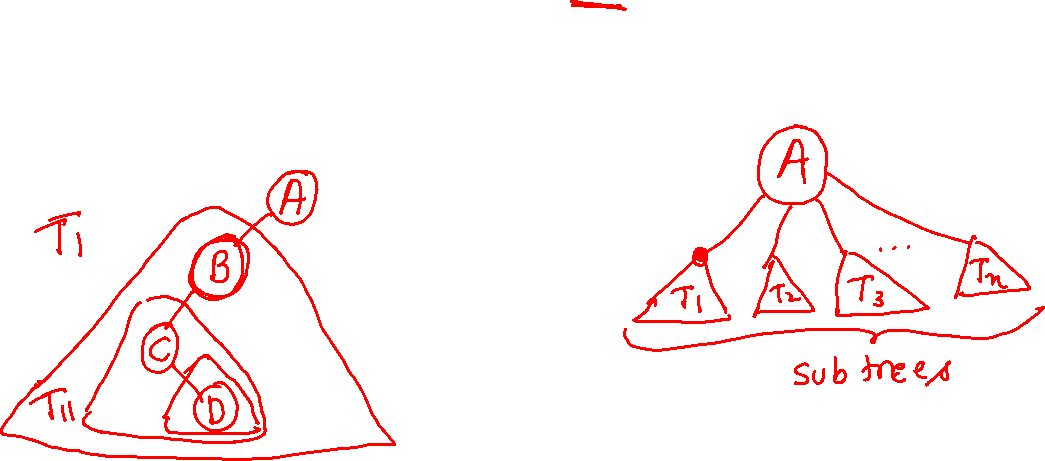 A
T1
B
C
T11
D
A
...
T1 T2 T3 Tn
subtrees